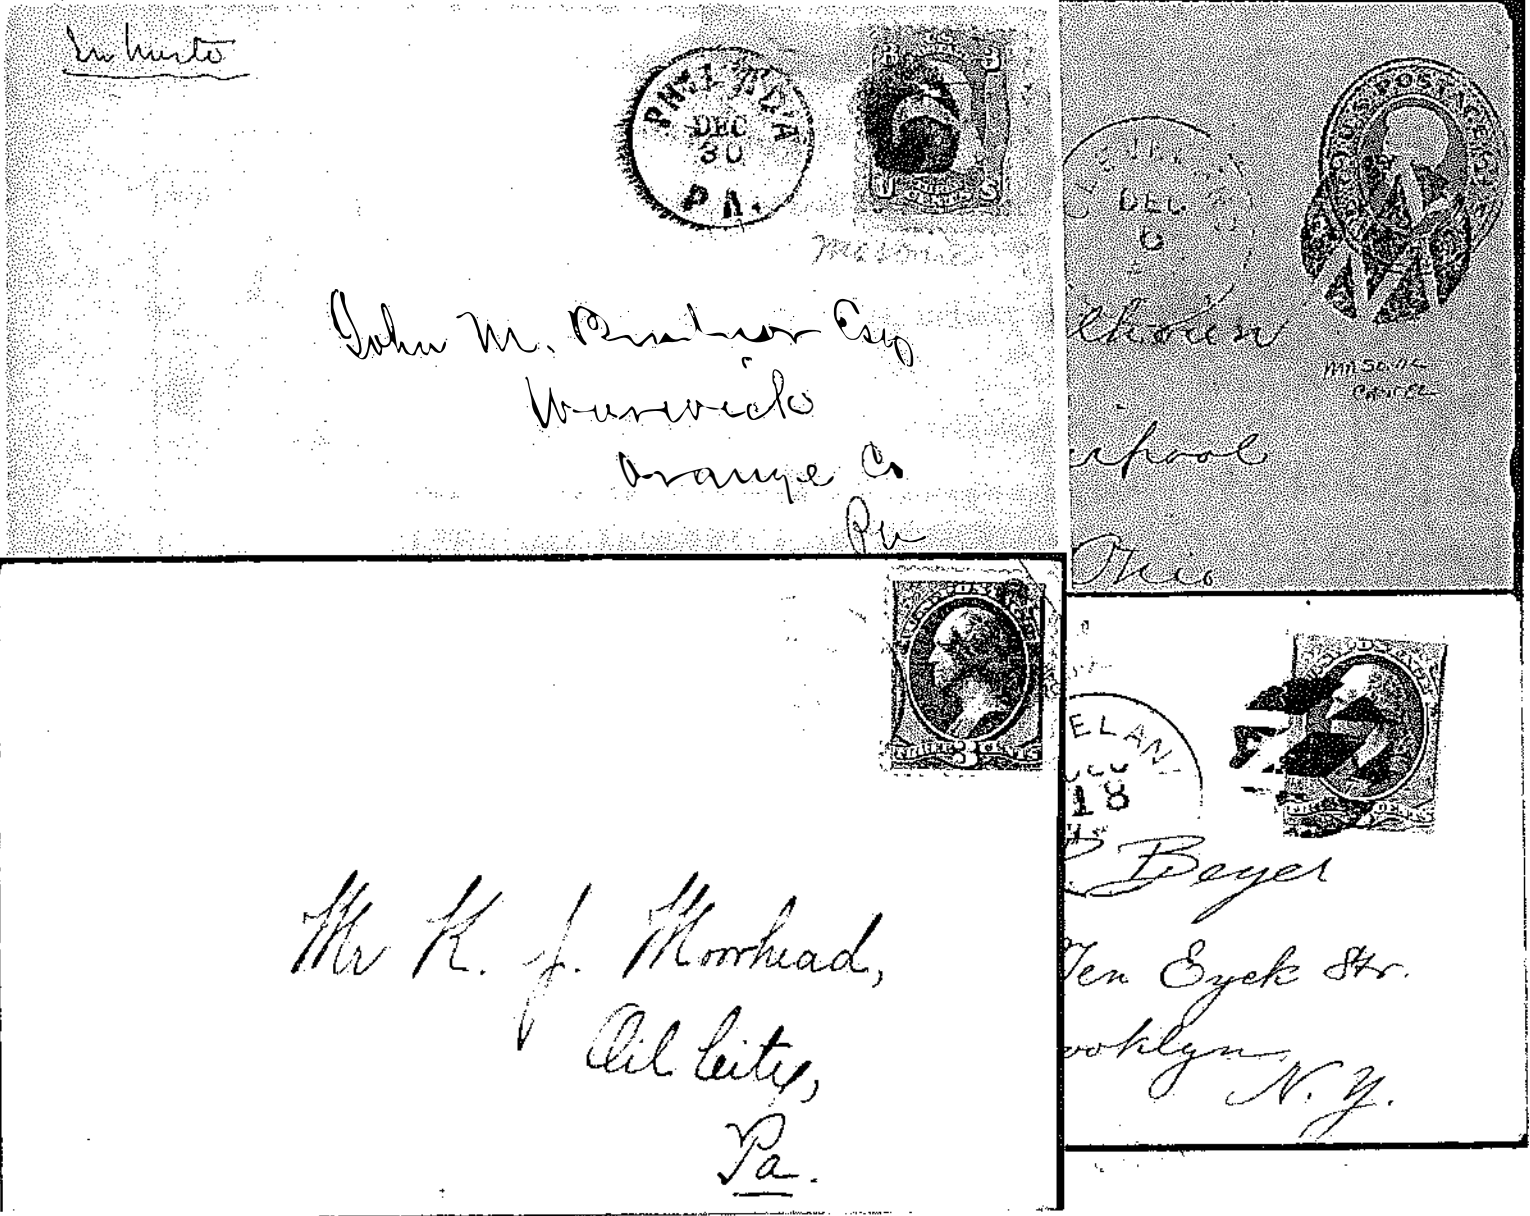 In haste
PHIL'DA
DEC
30
PA.
U.S.
3 3
THREE
U CENTS S
masonic
John M. Esq
Warwick
Orange Co
Pa
U.S. POSTAGE
DEC
6
MASONIC
CANCEL
Ohio
THREE 3 CENTS
Mr K. J. Moorhead,
Oil City,
Pa.
ELAN
18
CENTS
Beyer
Ten Eyck Str.
ooklyn
N. Y.